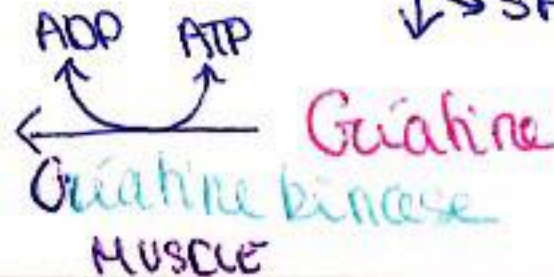 ADP ATP
Criatine
Criatine kincase
MUSCLE